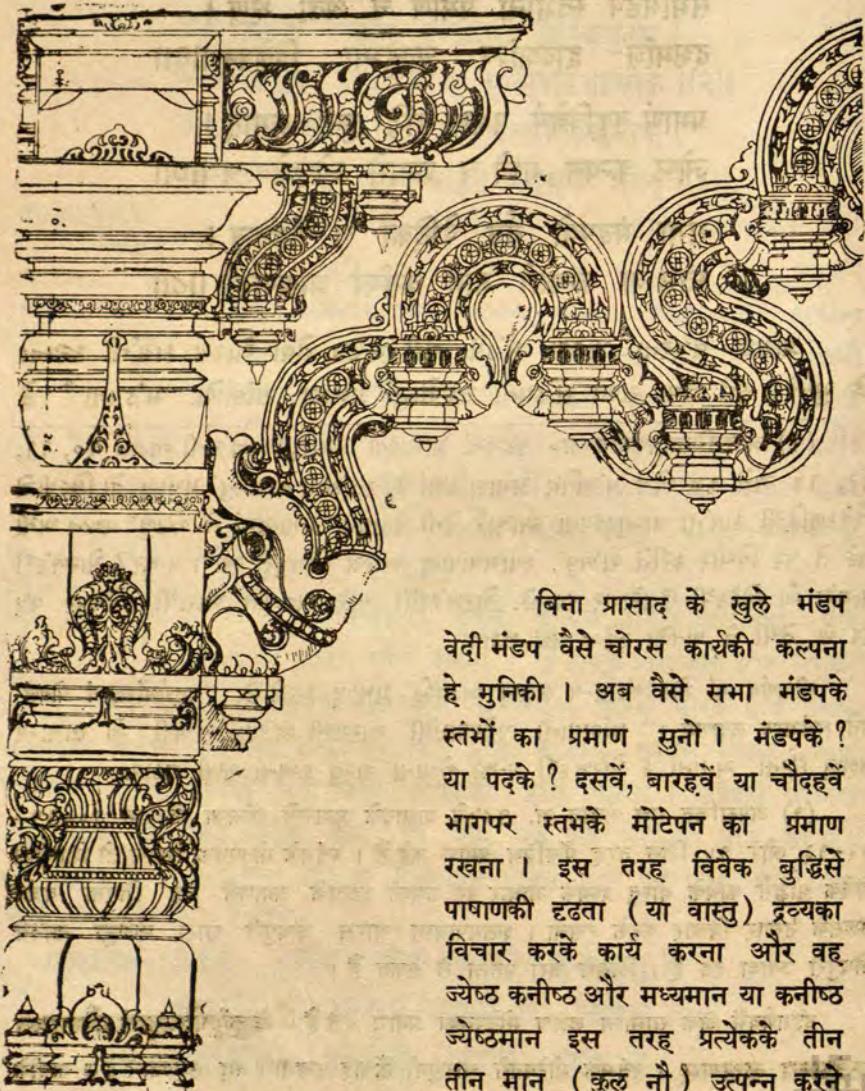 बिना प्रासाद के खुले मंडप
वेदी मंडप वैसे चोरस कार्यकी कल्पना
हे मुनिकी । अब वैसे सभा मंडपके
स्तंभों का प्रमाण सुनो । मंडपके ?
या पदके ? दसवें, बारहवें या चौदहवें
भागपर स्तंभके मोटेपन का प्रमाण
रखना । इस तरह विवेक बुद्धिसे
पाषाणकी दृढता ( या वास्तु ) द्रव्यका
विचार करके कार्य करना और वह
ज्येष्ठ कनीष्ठ और मध्यमान या कनीष्ठ
ज्येष्ठमान इस तरह प्रत्येकके तीन
तीन मान ( कुल नौ ) उत्पन्न करने